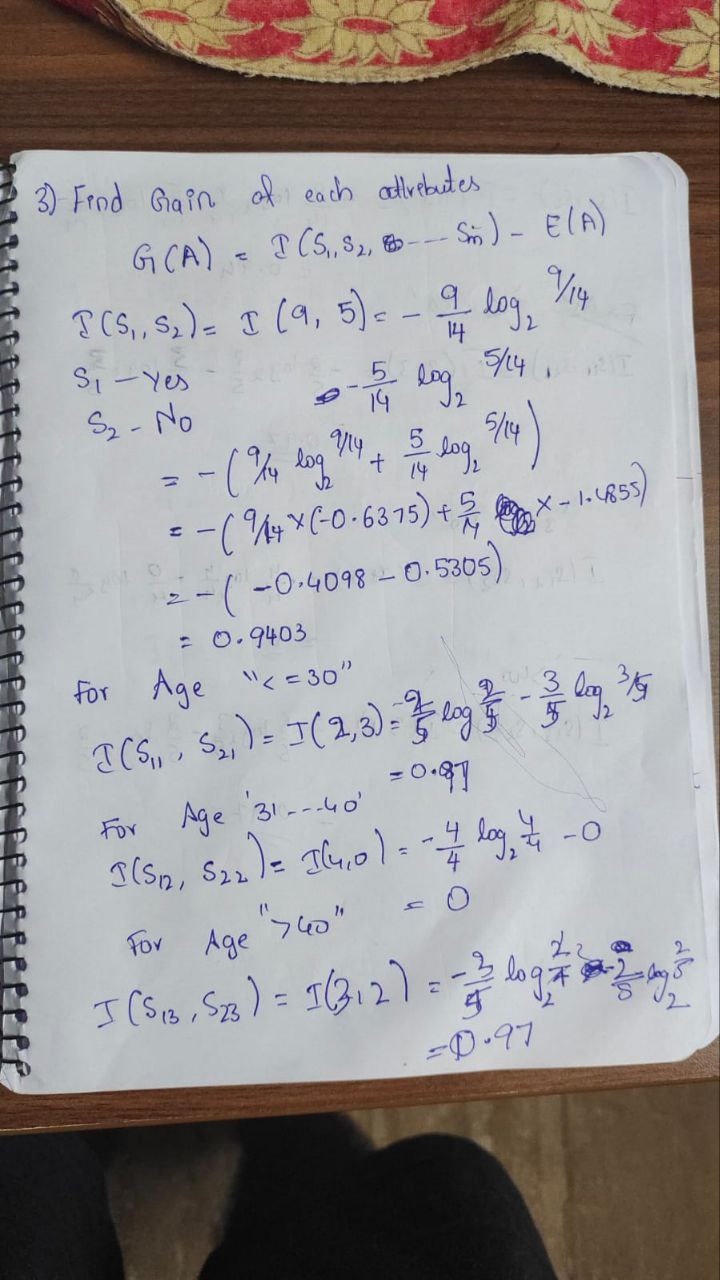 3) Find Gain of each attributes
G(A) = I(S₁, S₂, ---- Sm) - E(A)
I(S₁, S₂) = I (9, 5) = - 9/14 log₂ 9/14
S₁ - Yes - 5/14 log₂ 5/14
S₂ - No
= - (9/14 log₂ 9/14 + 5/14 log₂ 5/14)
= - (9/14 × (-0.6375) + 5/14 × -1.4855)
= - ( -0.4098 - 0.5305)
= 0.9403
For Age "<=30"
I(S₁₁, S₂₁) = I(2,3) = -2/5 log 2/5 - 3/5 log₂ 3/5
= 0.97
For Age '31---40'
I(S₁₂, S₂₂) = I(4,0) = -4/4 log₂ 4/4 - 0
= 0
For Age ">40"
I(S₁₃, S₂₃) = I(3,2) = -3/5 log₂ - 2/5 log₂ 2/5
= 0.97